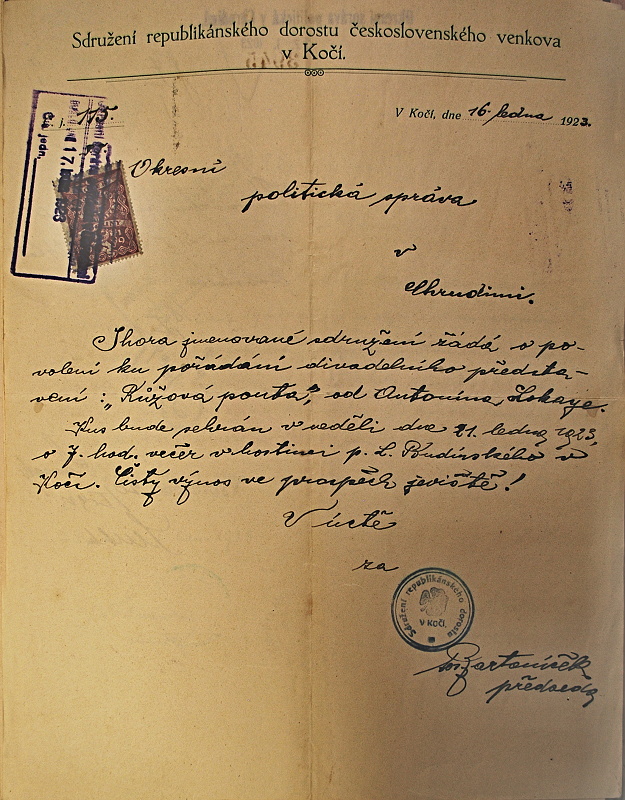 Sdružení republikánského dorostu československého venkova
v Kočí.
V Kočí, dne 16. ledna 1923.
Čís. jedn.
17.
1923
Okresní
politická správa
v
Chrudimi.
Shora jmenované sdružení žádá o po-
volení ku pořádání divadelního předsta-
vení: „Růžová pouta," od Antonína Lokaye.
Kus bude sehrán v neděli dne 21. ledna 1923,
o 7. hod. večer v hostinci p. L. Budínského v
Kočí. Čistý výnos ve prospěch jeviště!
V úctě
za
Sdružení republikánského dorostu
v KOČÍ.
Bartoníček
předseda